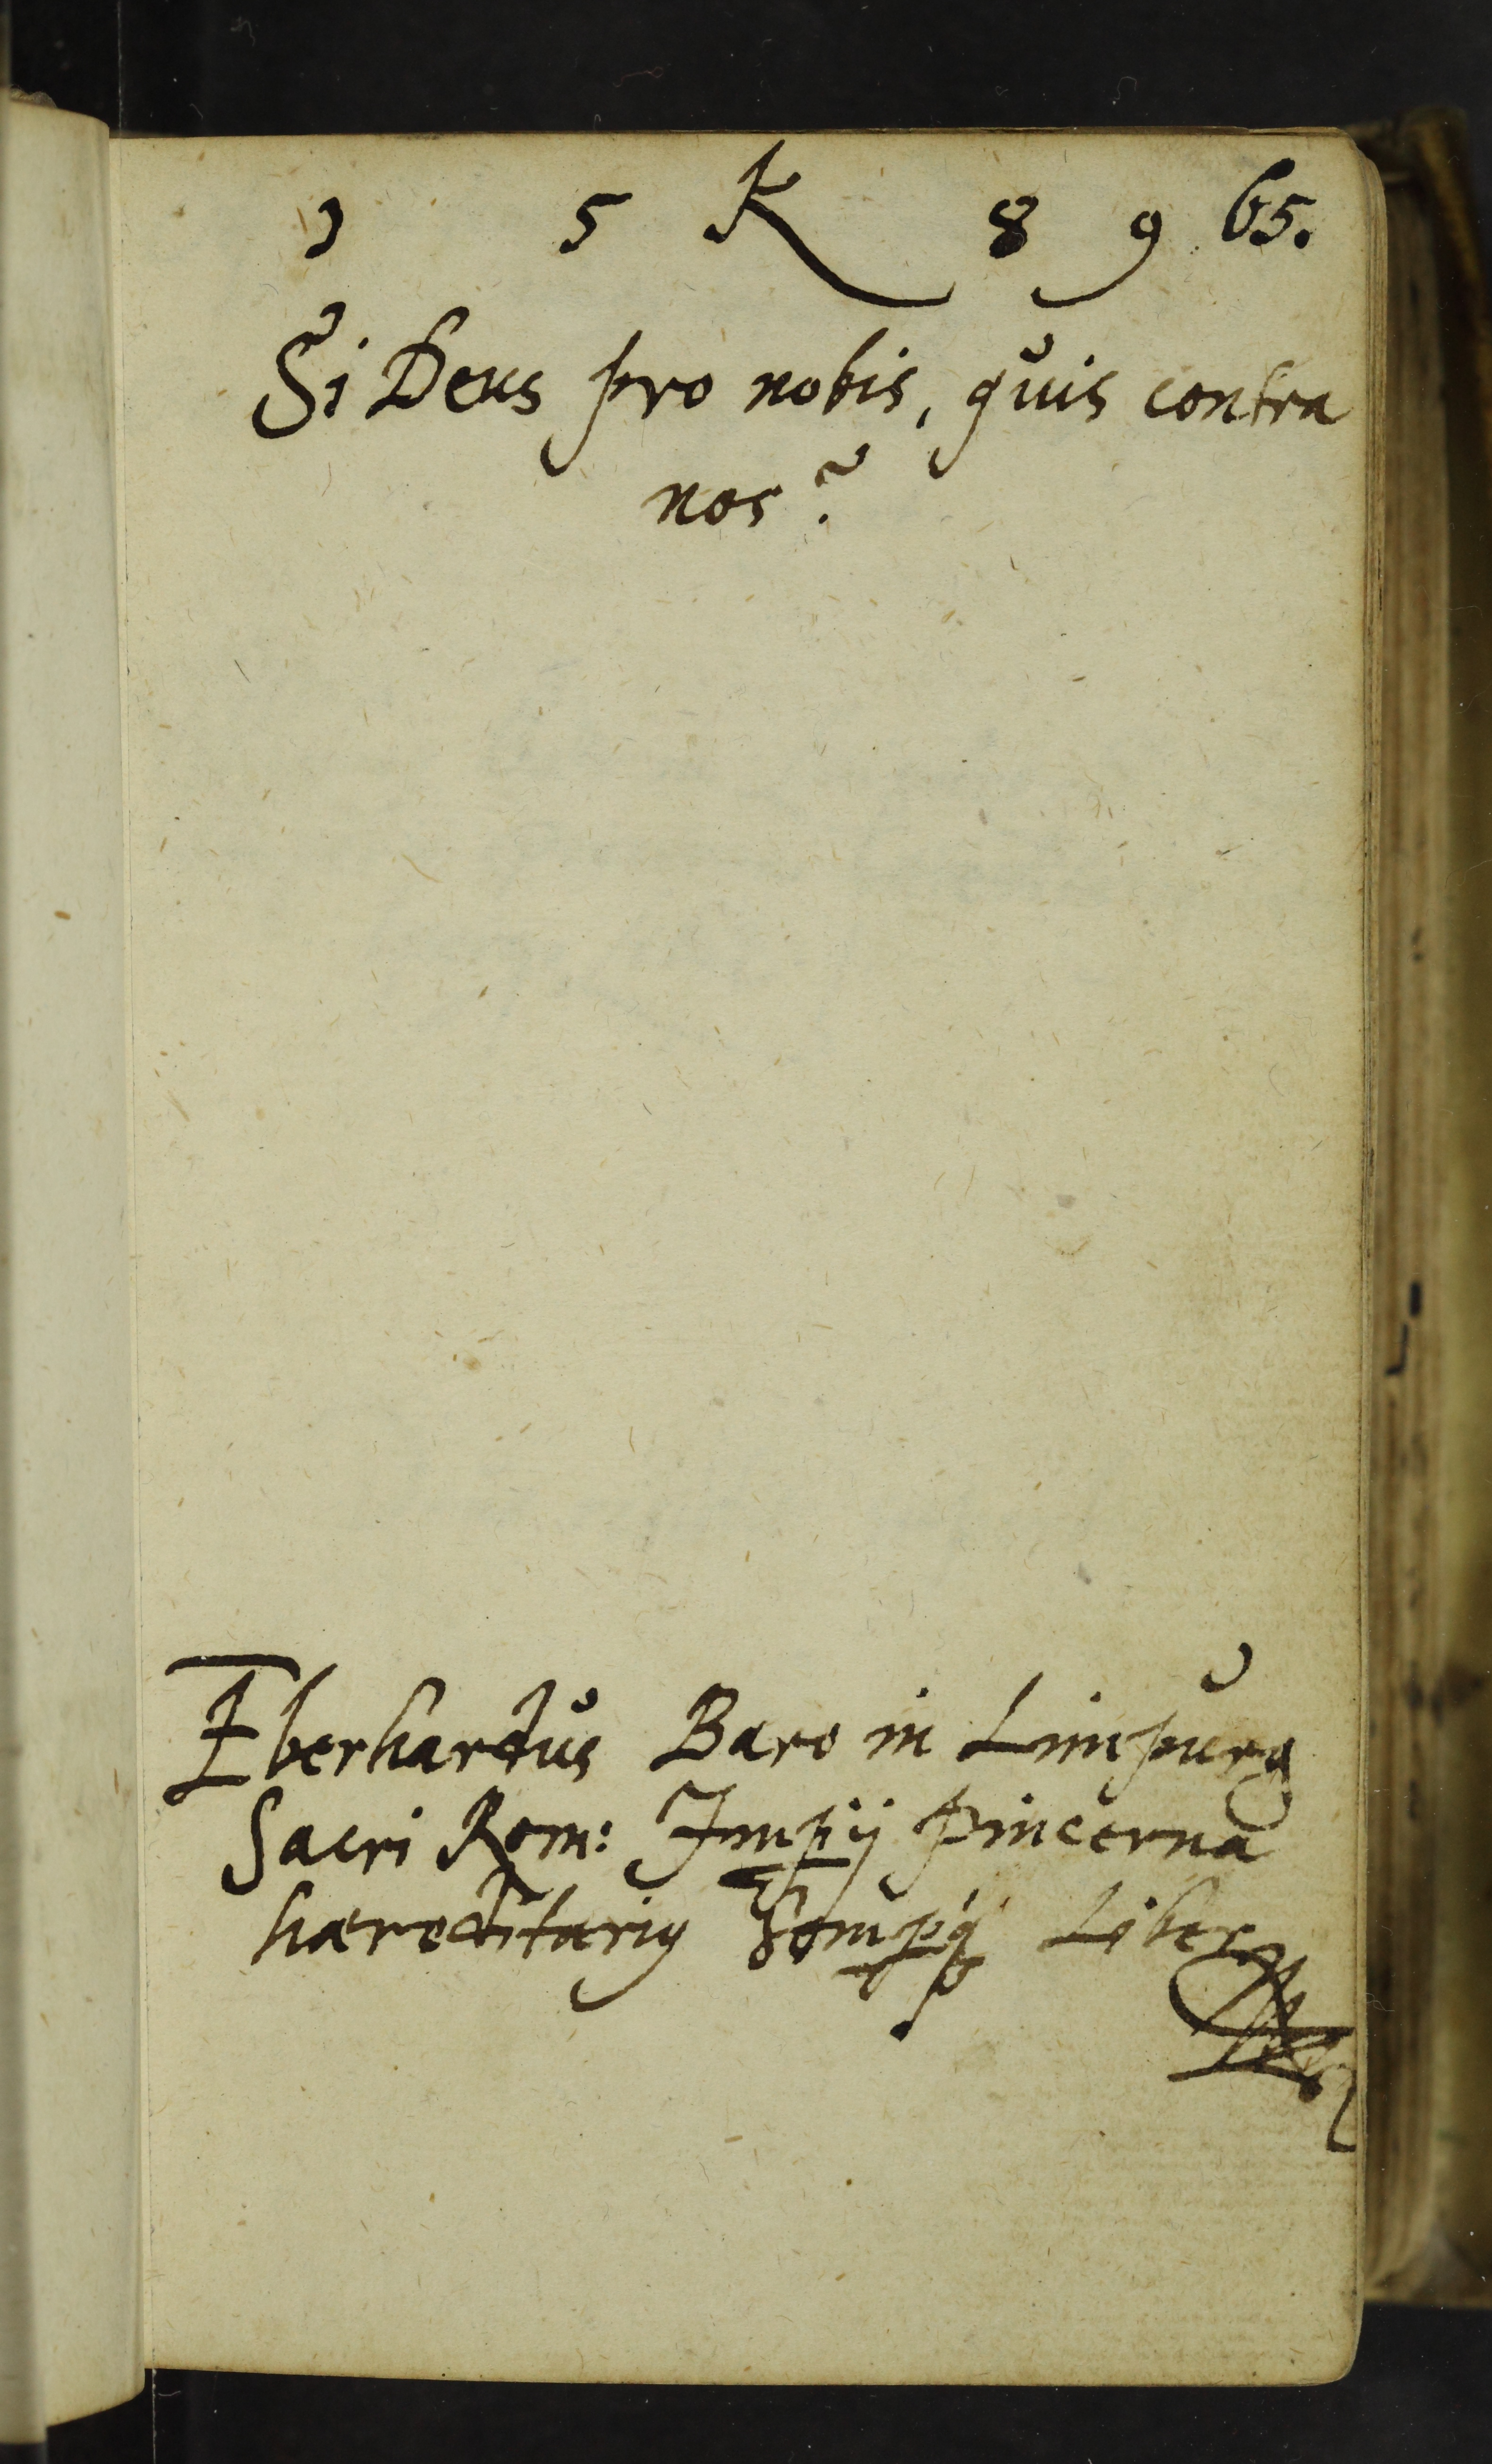 1 5 K 8 9 65.
Si Deus pro nobis, quis contra
nos?
Eberhardus Baro in Limpurg
Sacri Rom: Impij Pincerna
hæreditariꝰ Sempq́ Liber